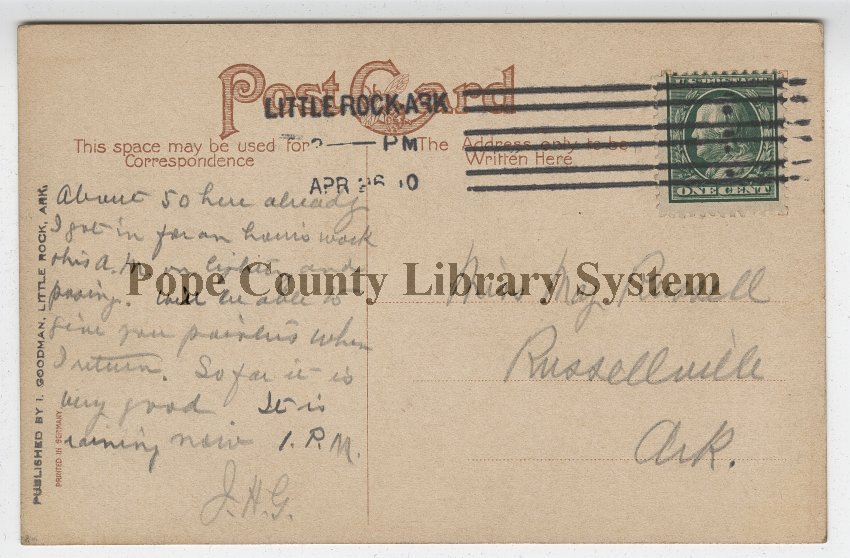 Post Card
LITTLE ROCK, ARK
PM
APR 26 10
This space may be used for
Correspondence
The Address only to be
Written Here
U.S. POSTAGE
ONE CENT
About 50 here already
I got in for an hours work
this A.M. on lights and
posing. Will be able to
give you pointers when
I return. So far it is
very good It is
raining now 1. P.M.
J.H.G.
Miss May Russell
Russellville
Ark.
PUBLISHED BY I. GOODMAN, LITTLE ROCK, ARK.
PRINTED IN GERMANY
Pope County Library System